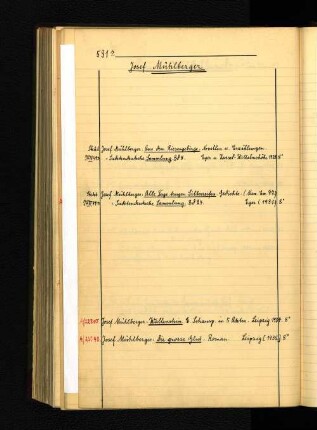 531a
Josef Mühlberger
Josef Mühlberger: Aus dem Riesengebirge. Novellen u. Erzählungen
- Sudetendeutsche Sammlung Bd 8. Eger u. Kassel-Wilhelmshöhe 1929. 8°
Josef Mühlberger: Alle Tage trugen Silberreifen. Gedichte.
- Sudetendeutsche Sammlung. Bd 24. Eger 8°
Josef Mühlberger: Wallenstein. Schausp. in 5 Akten. Leipzig 8°
Josef Mühlberger: Die grosse Glut. Roman. Leipzig 8°